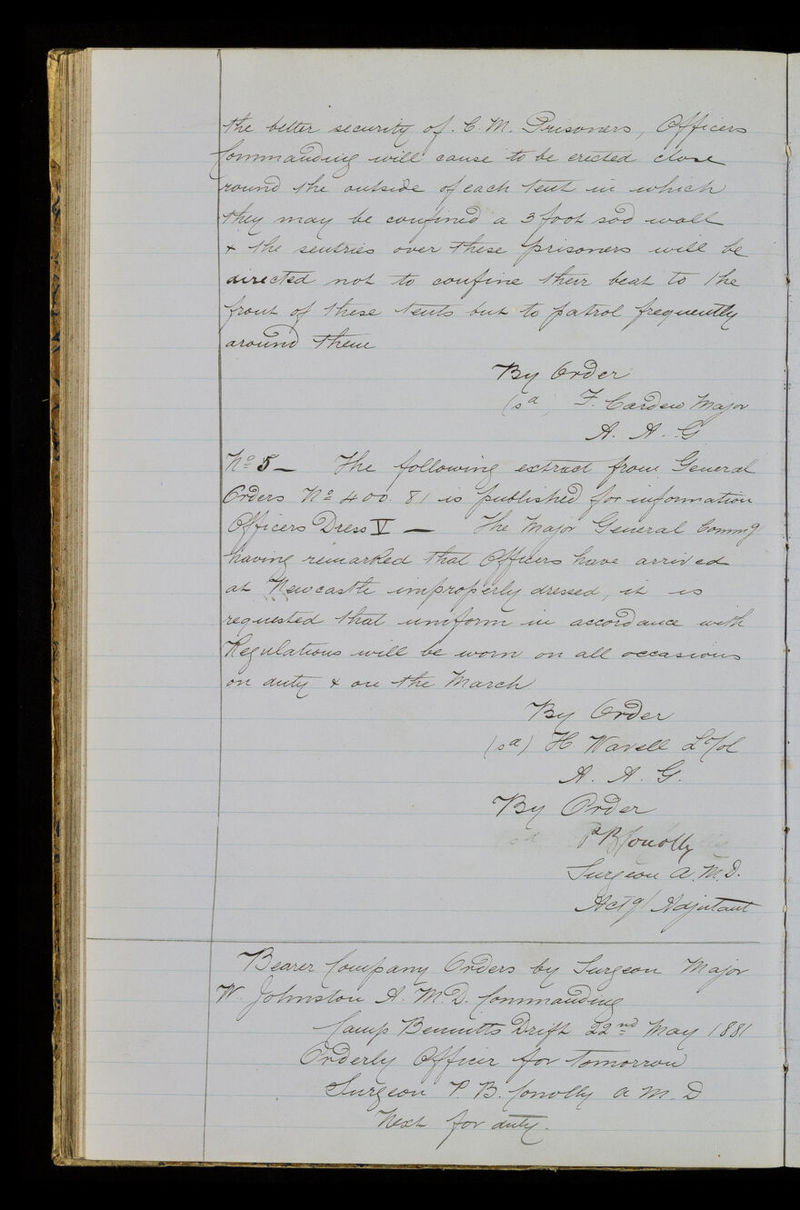 the better security of. C. M. Prisoners, Officers
Commanding will cause to be erected close
round the outside of each tent in which
they may be confined a 3 foot sod wall
+ the sentries over these prisoners will be
directed not to confine their beat to the
front of these tents but to patrol frequently
around them
By Order
(sd) F. Cardew Major
A. A. G
No 5 — The following extract from General
Orders No 400. 81 is published for information
Officers Dress V — The Major General Commg
having remarked that Officers have arrived
at Newcastle improperly dressed, it is
requested that uniform in accordance with
Regulations will be worn on all occasions
on duty + on the March
By Order
(sd) H Wavell Lt Col
A. A. G.
By Order
P B Conolly
Surgeon A. M. D.
Actg Adjutant
Bearer Company Orders by Surgeon Major
W. Johnston A. M. D. Commanding
Camp Bennitts Drift 22nd May 1881
Orderly Officer for Tomorrow
Surgeon P. B. Conolly A M. D
Next for duty.